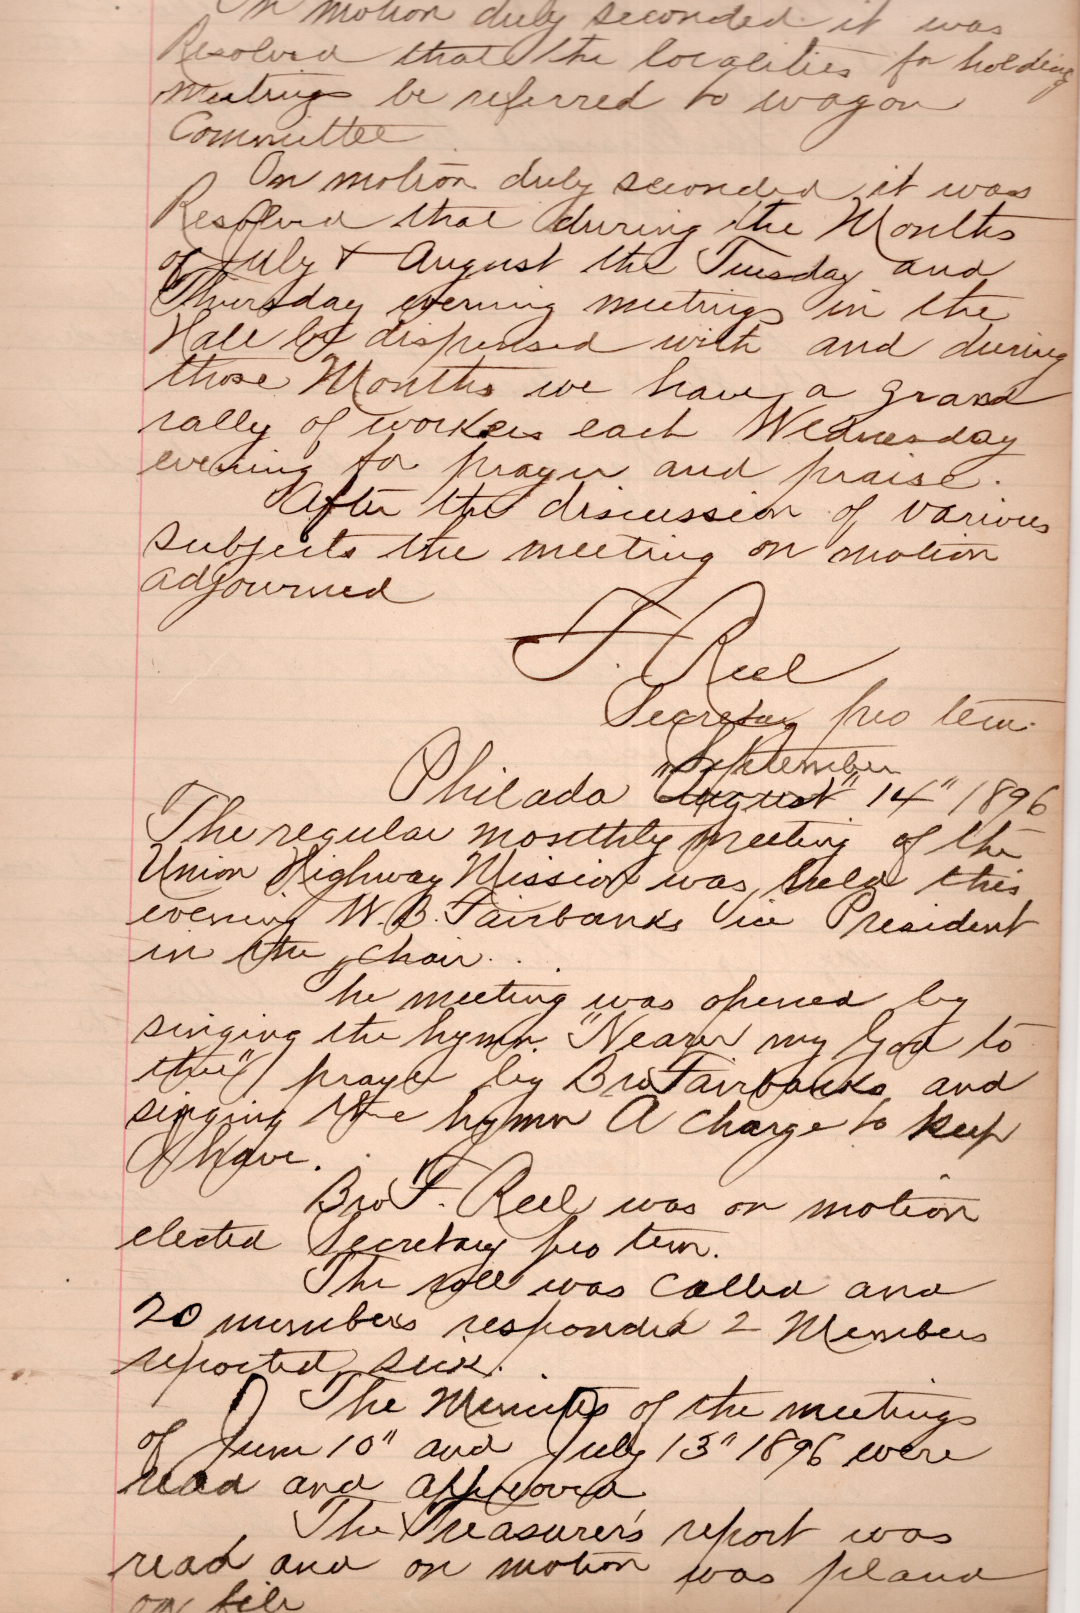 On motion duly seconded it was
Resolved that the localities for holding
meetings be referred to wagon
Committee
On motion duly seconded it was
Resolved that during the Months
of July & August the Tuesday and
Thursday evening meetings in the
Hall be dispensed with and during
those Months we have a grand
rally of workers each Wednesday
evening for prayer and praise.
After the discussion of various
subjects the meeting on motion
adjourned
F. Reel
Secretary pro tem.
September
Philada "August" 14" 1896
The regular monthly meeting of the
Union Highway Mission was held this
evening W.B. Fairbanks vice President
in the chair.
The meeting was opened by
singing the hymn "Nearer my God to
thee" prayer by Bro Fairbanks and
singing the hymn A charge to keep
I have.
Bro F. Reel was on motion
elected Secretary pro tem.
The roll was called and
20 members responded 2 Members
reported sick.
The Minutes of the meetings
of June 10" and July 13" 1896 were
read and approved
The Treasurer's report was
read and on motion was placed
on file